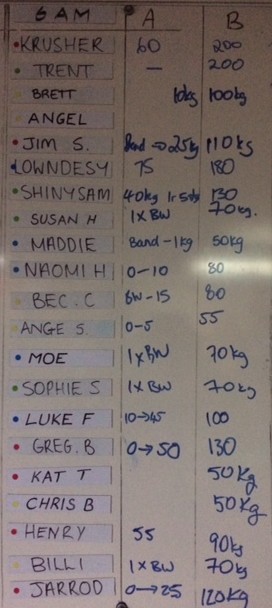 6 AM A B
KRUSHER 60 200
TRENT — 200
BRETT 10kg 100kg
ANGEL
JIM S. Band → 25kg 110kg
LOWNDESY 75 180
SHINYSAM 40kg 130
SUSAN H 1xBW 70kg.
MADDIE Band - 1kg 50kg
NAOMI H 0-10 80
BEC. C BW-15 80
ANGE S. 0-5 55
MOE 1xBW 70kg
SOPHIE S 1xBW 70kg
LUKE F 10→45 100
GREG. B 0→50 130
KAT T 50Kg
CHRIS B 50Kg
HENRY 55 90kg
BILLI 1xBW 70kg
JARROD 0→25 120kg